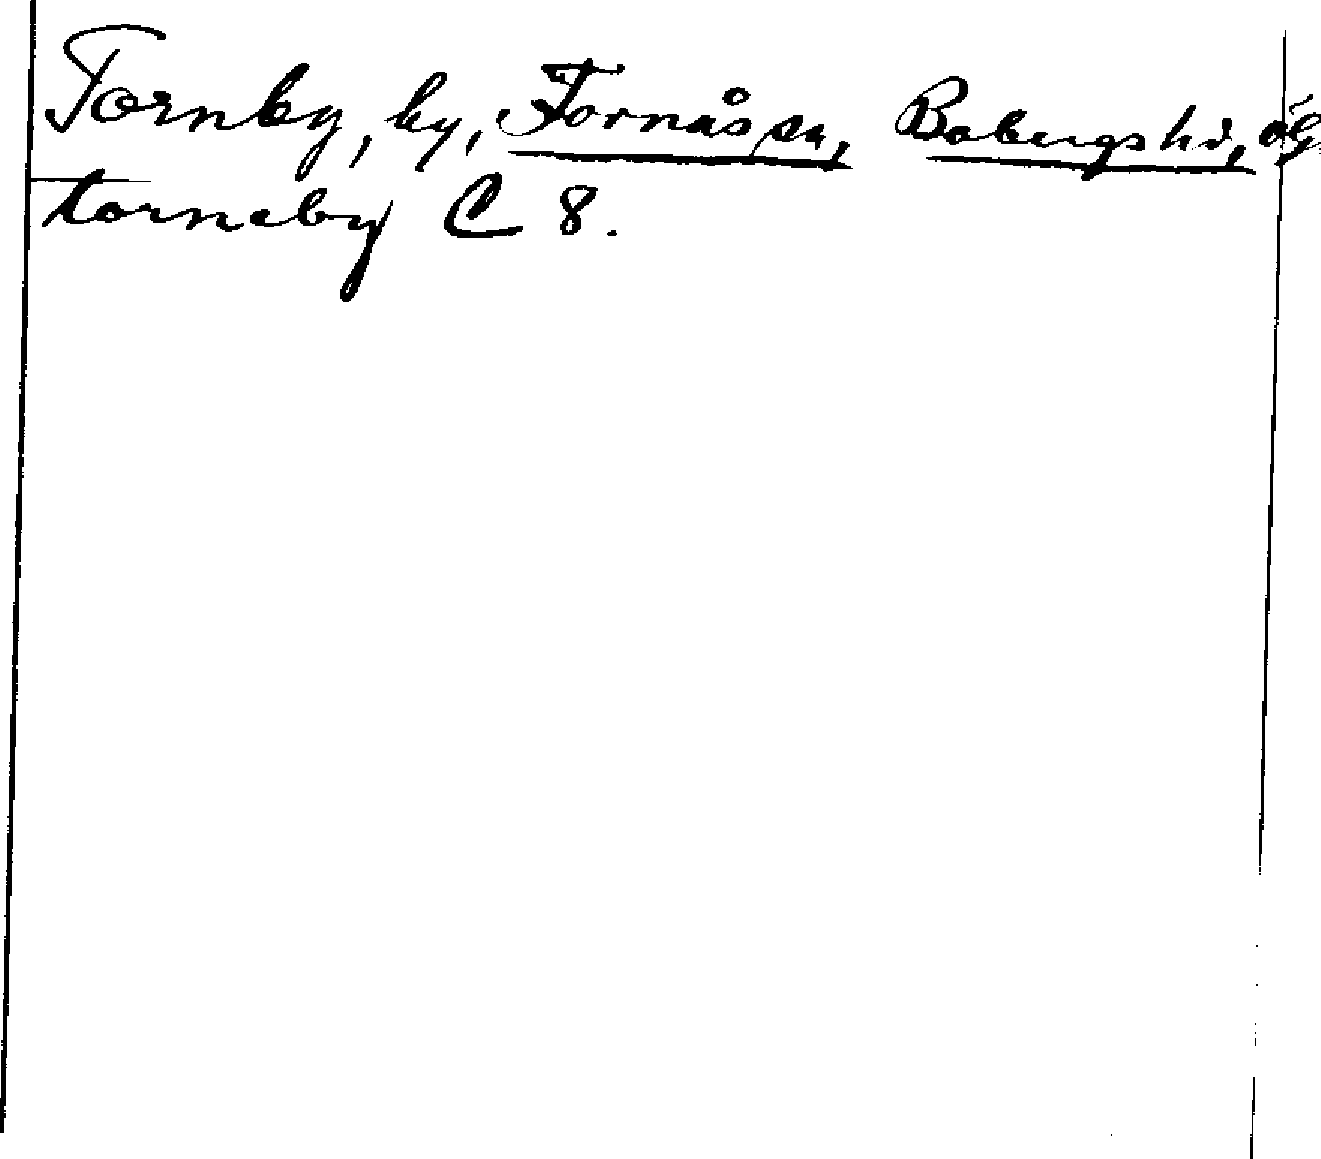 Tornby, by, Fornåsa, Bobergs hd, Ög.
torneby C 8.